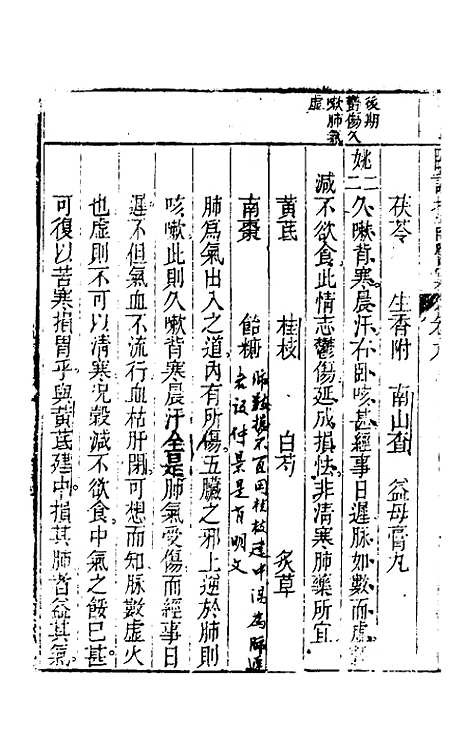 後期
鬱傷久
嗽肺氣
虛
茯苓 生香附 南山查 益母膏丸
姚二二久嗽背寒晨汗右卧咳甚經事日遲脉如數而虛
減不欲食此情志鬱傷延成損怯非清寒肺藥所宜
黃芪 桂枝 白芍 炙草
南棗 飴糖
肺爲氣出入之道内有所傷五臟之邪上逆於肺則
咳嗽此則久嗽背寒晨汗全是肺氣受傷而經事日
遲不但氣血不流行血枯肝閉可想而知脉數虛火
也虛則不可以清寒况穀減不欲食中氣之餒已甚
可復以苦寒損胃乎與黃芪建中損其肺者益其氣